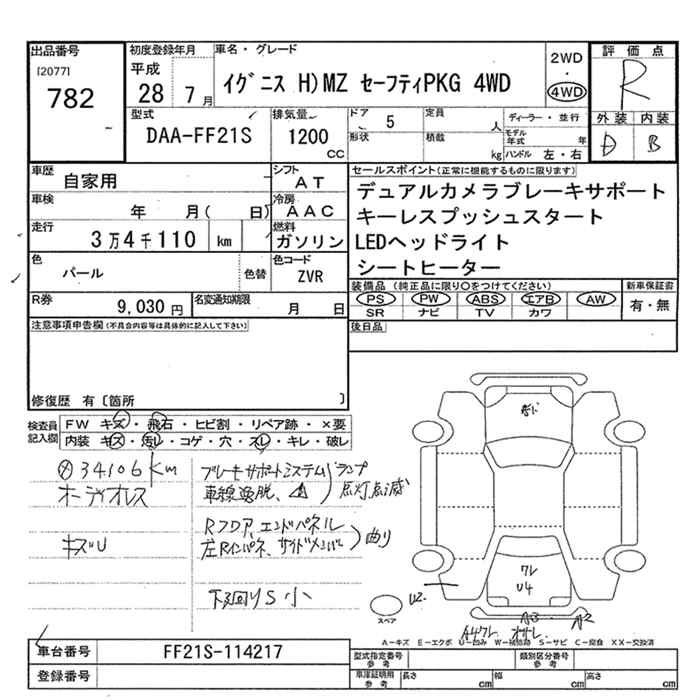 出品番号
[2077]
782
初度登録年月
平成
28 7月
車名・グレード
イグニス H)MZ セーフティPKG 4WD
2WD
・
4WD
評価点
R
外装 内装
D B
型式
DAA-FF21S
排気量
1200
CC
ドア
5
定員
人
形状
積載
kg
ディーラー・並行
モデル年式
年
ハンドル 左・右
車歴
自家用
シフト
AT
車検
年 月( 日)
冷房
AAC
走行
3万4千110 km
燃料
ガソリン
色
パール
色替
色コード
ZVR
R券
9,030円
名変通知期限
月 日
セールスポイント(正常に機能するものに限ります)
デュアルカメラブレーキサポート
キーレスプッシュスタート
LEDヘッドライト
シートヒーター
装備品 (純正品に限り○をつけてください)
PS PW ABS エアB AW
SR ナビ TV カワ
新車保証書
有・無
後日品
注意事項申告欄(不具合内容等は具体的に記入して下さい)
修復歴 有〔箇所 〕
検査員
記入欄
FW キズ・飛石・ヒビ割・リペア跡・×要
内装 キズ・汚レ・コゲ・穴・スレ・キレ・破レ
34106km
オーディオレス
キズU
ブレーキサポートシステム
車線逸脱、
ランプ
点灯点滅
Rフロア、エンドパネル
左Rインパネ、サイドメンバー
曲り
下回りS小
ワレ
U4
U2
A3
A2
A4ワレ
スペア
A-キズ E-エクボ U-凹み W-補修跡 S-サビ C-腐食 XX-交換済
車台番号
FF21S-114217
登録番号
型式指定番号
参考
類別区分番号
参考
車庫証明用
参考
長さ
cm
幅
cm
高さ
cm